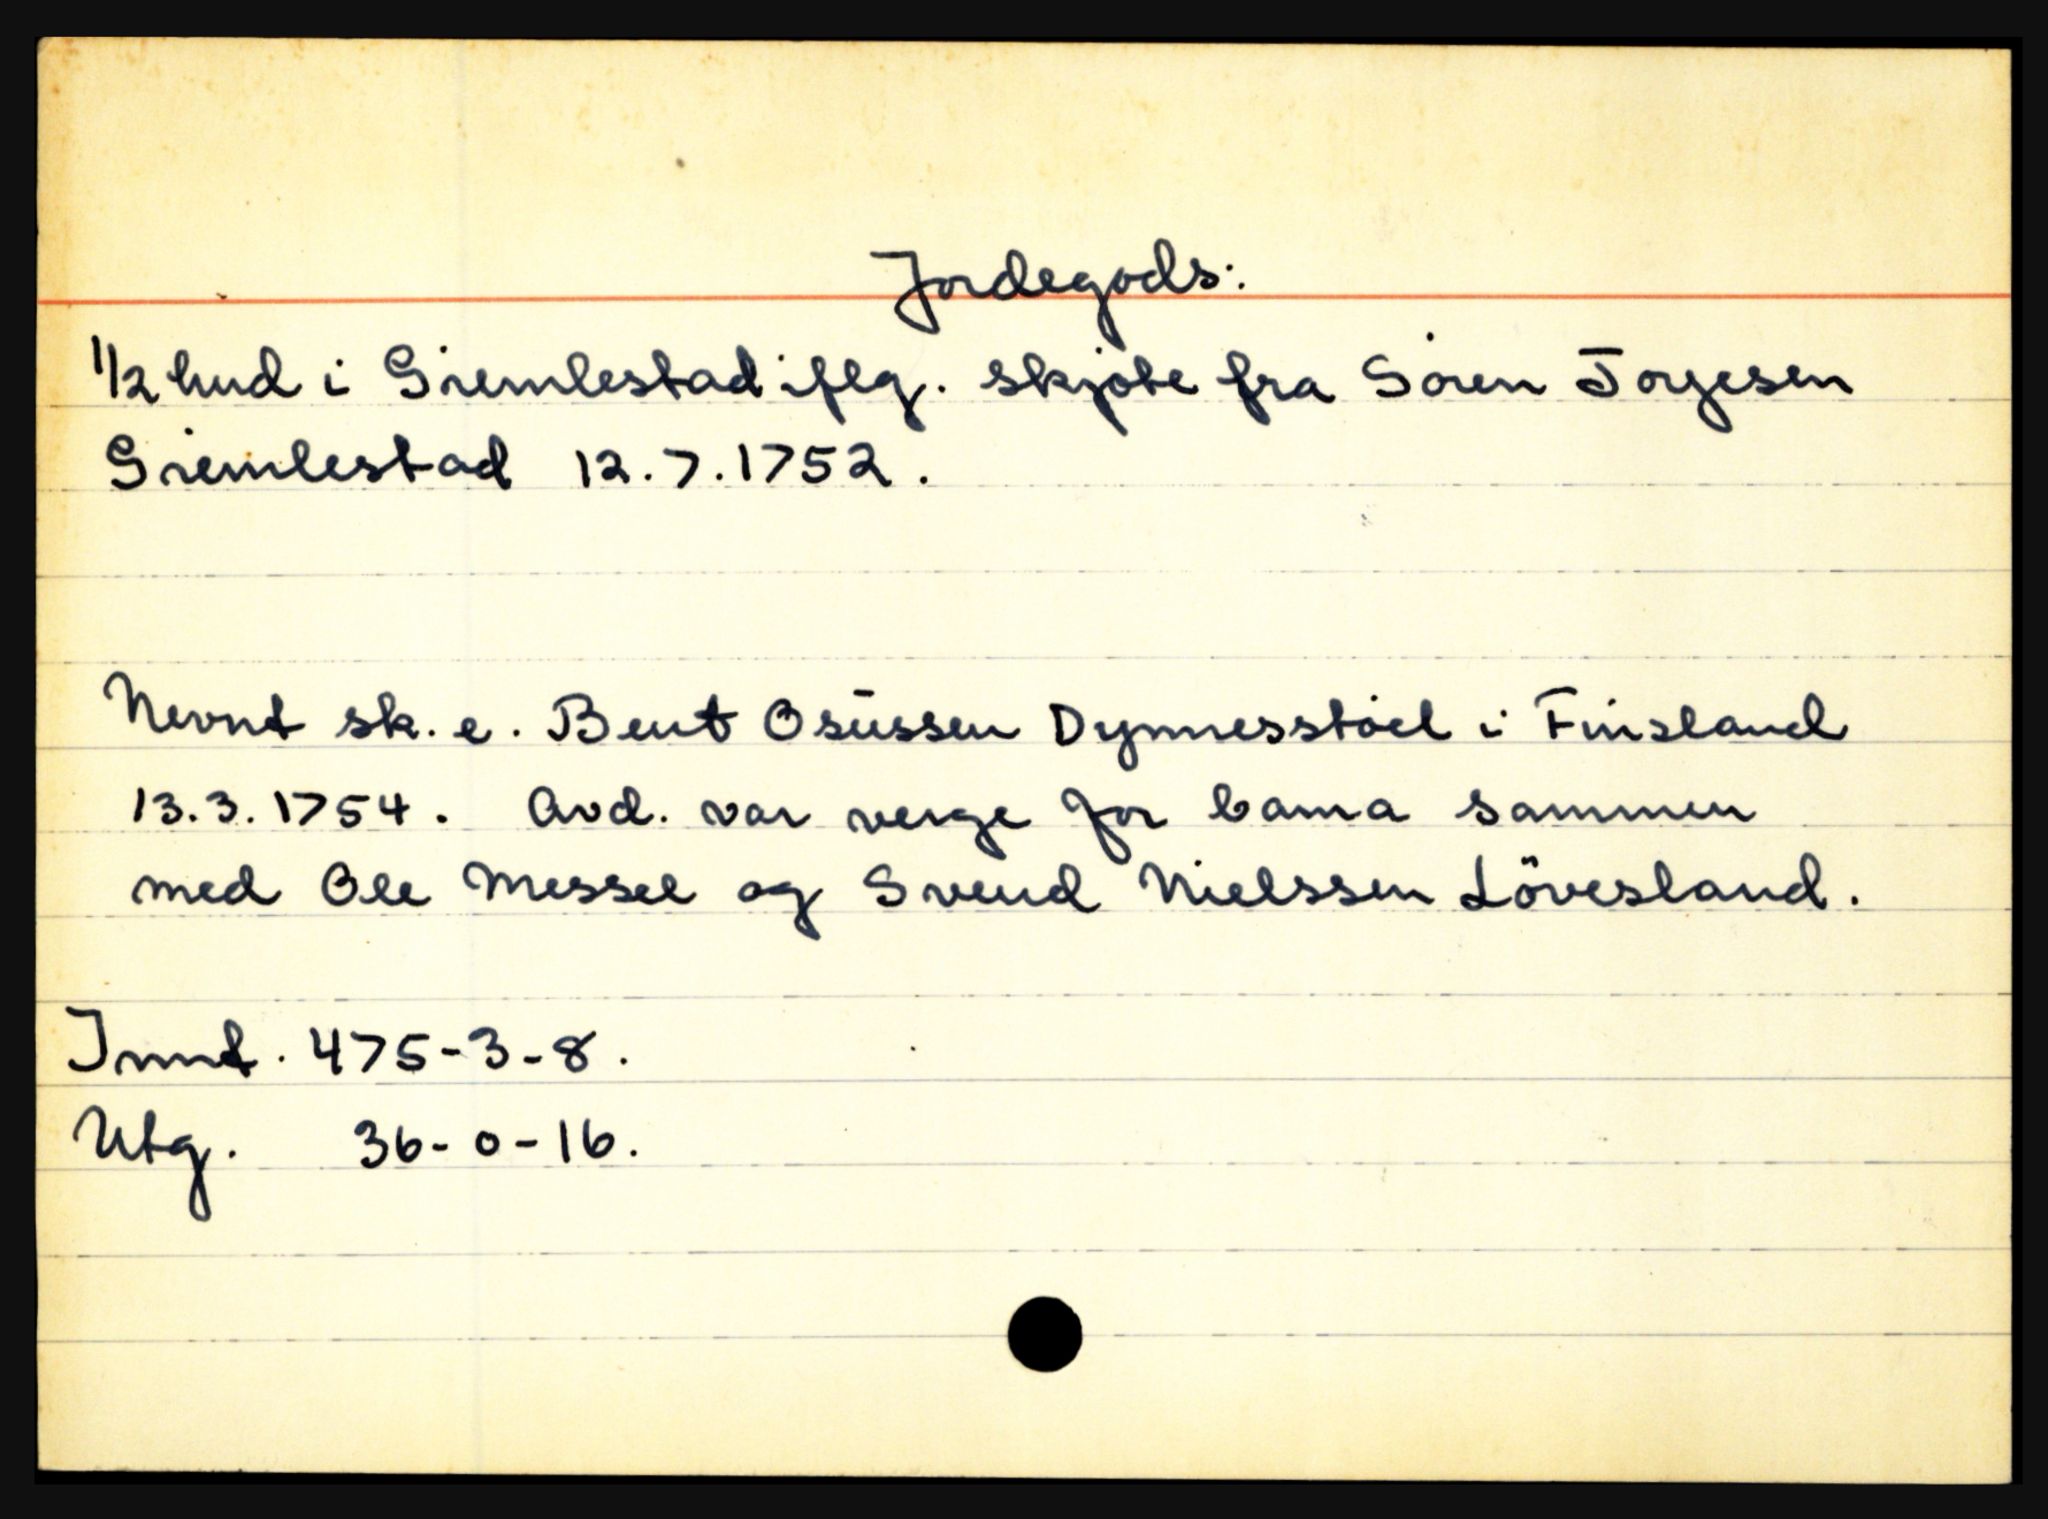 Jordegods:
1/2 hud i Gremlestad iflg. skjöte fra Sören Torgesen
Gremlestad 12.7.1752.
Nevnt sk. e. Bent Osüssen Dynnesstöel i Finsland
13.3.1754. Avd. var verge for barna sammen
med Ole Messel og Svend Nielssen Lövesland.
Innt. 475-3-8.
Utg. 36-0-16.